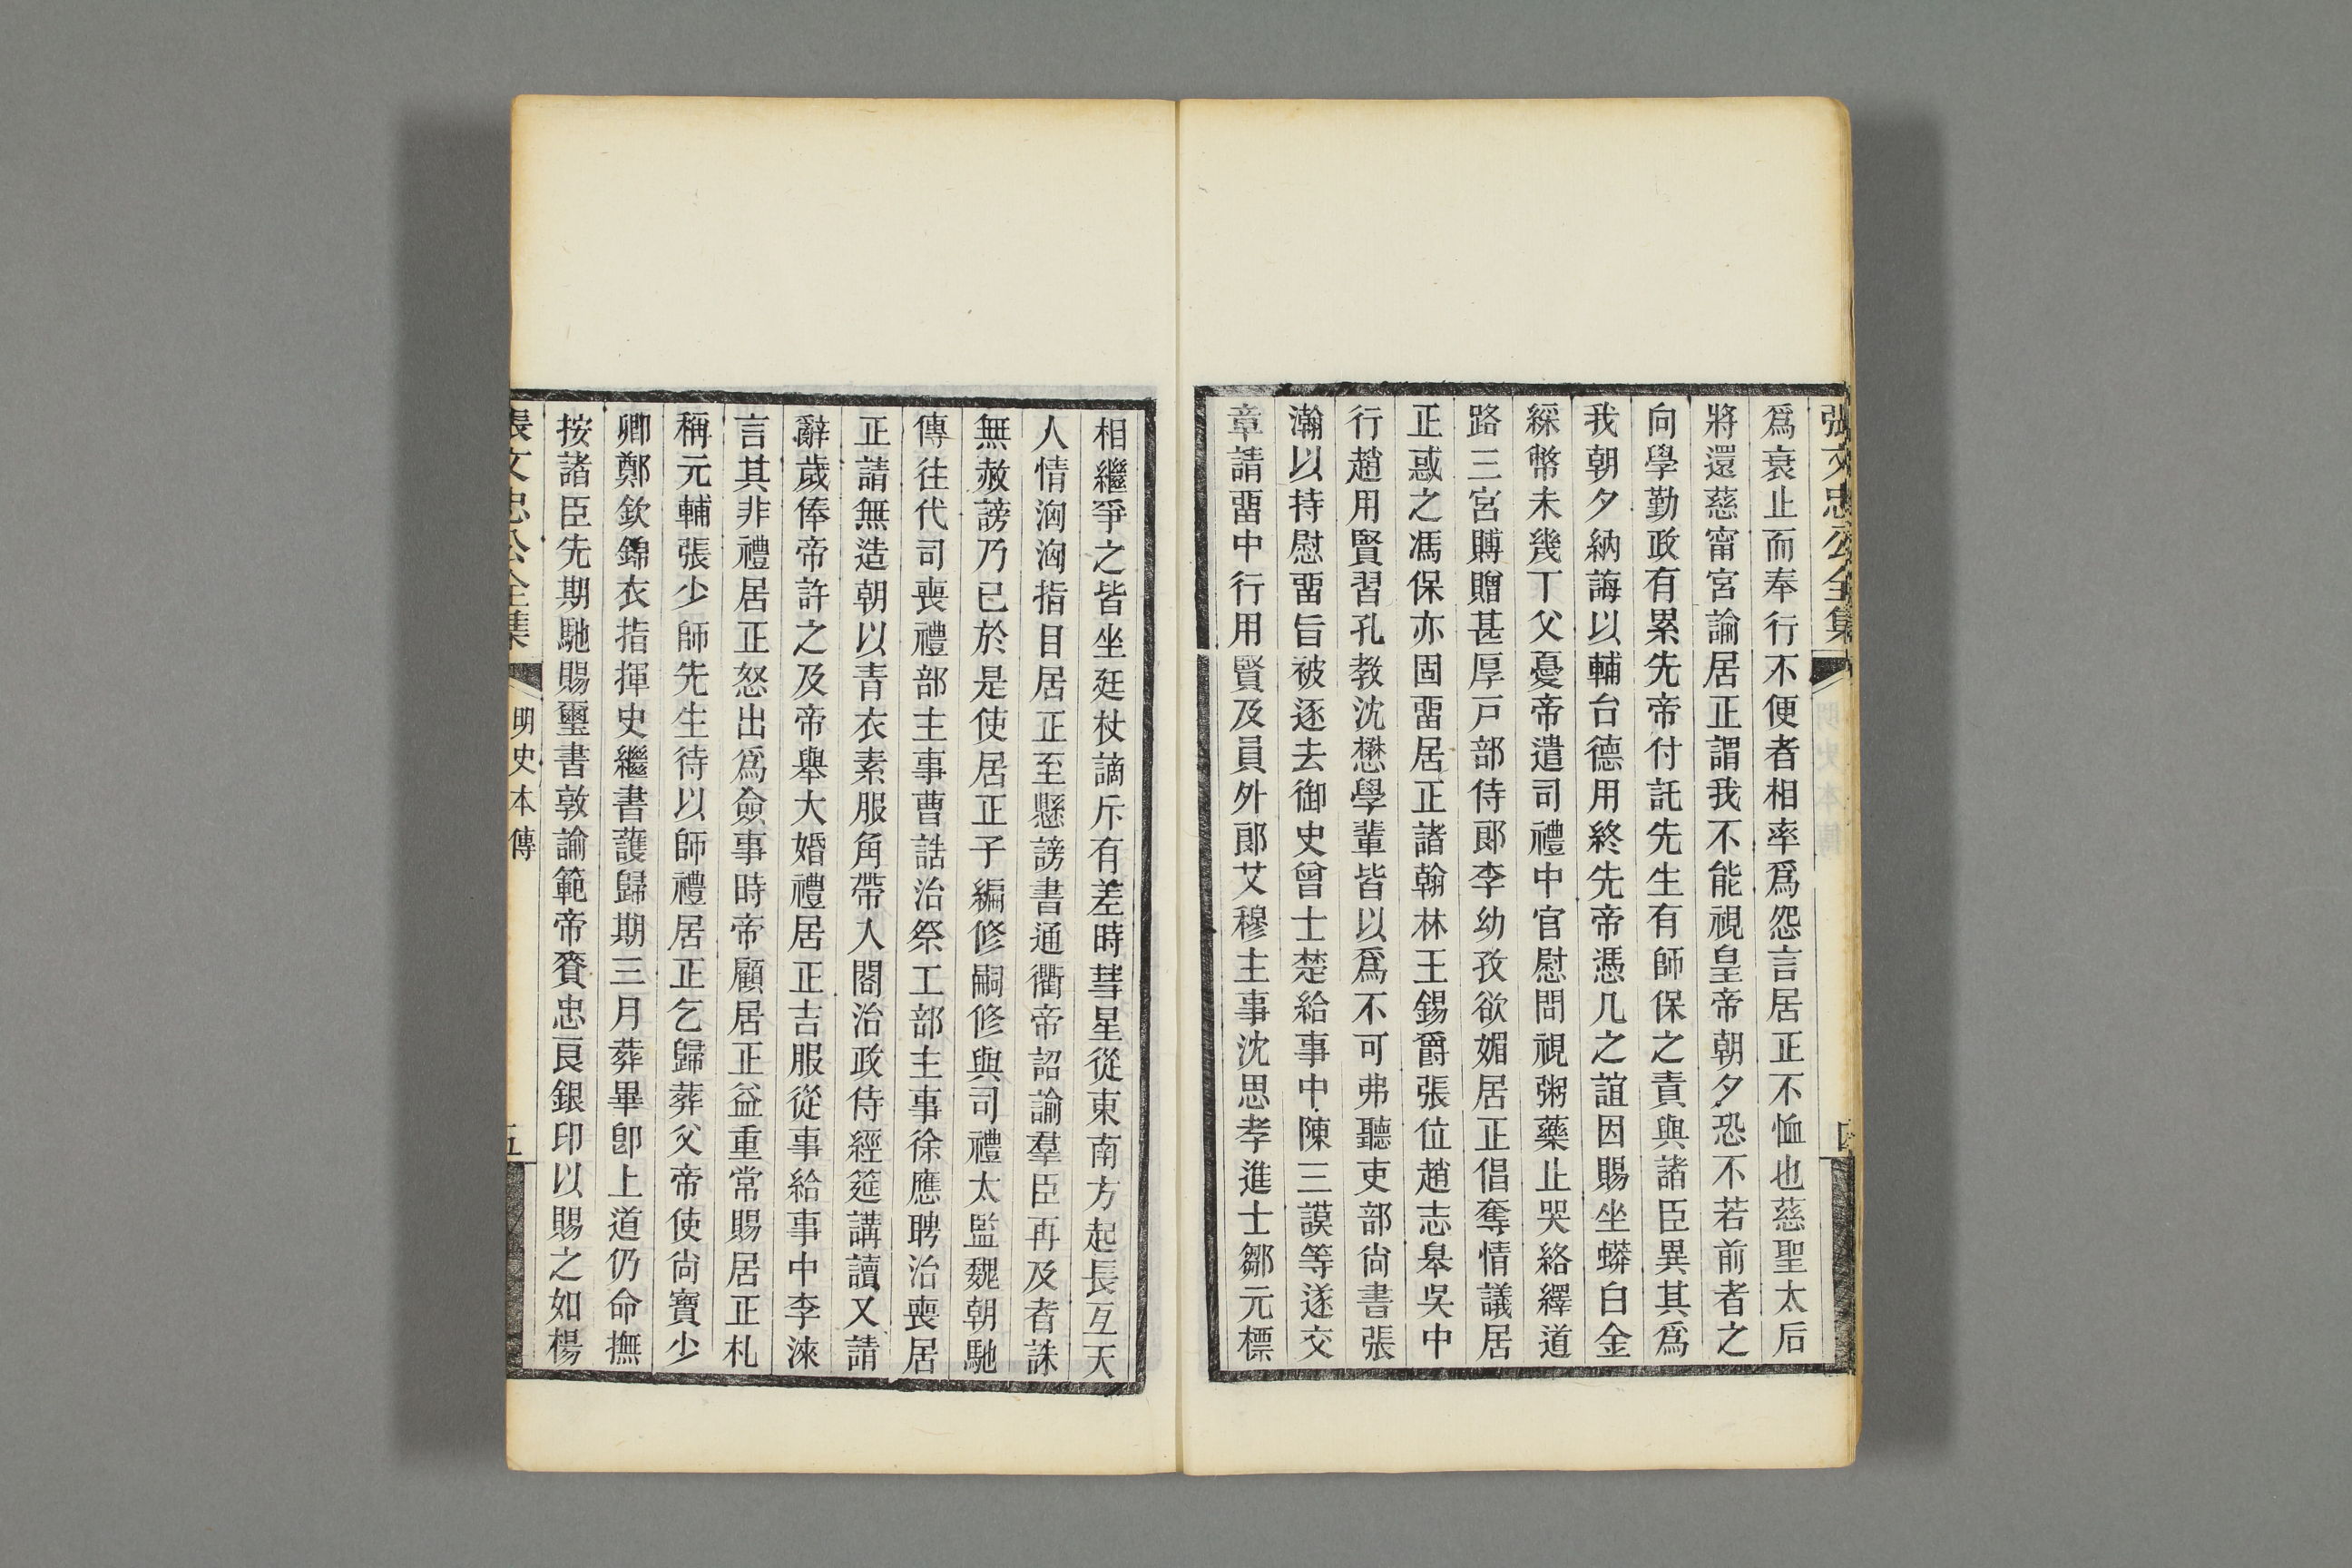 張文忠公全集
爲衰止而奉行不便者相率爲怨言居正不恤也慈聖太后
將還慈甯宮諭居正謂我不能視皇帝朝夕恐不若前者之
向學勤政有累先帝付託先生有師保之責與諸臣異其爲
我朝夕納誨以輔台德用終先帝憑几之誼因賜坐蟒白金
綵幣未幾丁父憂帝遣司禮中官慰問視粥藥止哭絡繹道
路三宮賻贈甚厚戸部侍郎李幼孜欲媚居正倡奪情議居
正惑之馮保亦固畱居正諸翰林王錫爵張位趙志皋吳中
行趙用賢習孔教沈懋學輩皆以爲不可弗聽吏部尙書張
瀚以持慰畱旨被逐去御史曾士楚給事中陳三謨等遂交
章請畱中行用賢及員外郎艾穆主事沈思孝進士鄒元標
相繼爭之皆坐廷杖謫斥有差時彗星從東南方起長亙天
人情洶洶指目居正至懸謗書通衢帝詔諭羣臣再及者誅
無赦謗乃已於是使居正子編修嗣修與司禮太監魏朝馳
傳往代司喪禮部主事曹誥治祭工部主事徐應聘治喪居
正請無造朝以青衣素服角帶入閣治政侍經筵講讀又請
辭歲俸帝許之及帝舉大婚禮居正吉服從事給事中李淶
言其非禮居正怒出爲僉事時帝顧居正益重常賜居正札
稱元輔張少師先生待以師禮居正乞歸葬父帝使尙寶少
卿鄭欽錦衣指揮史繼書護歸期三月葬畢卽上道仍命撫
按諸臣先期馳賜璽書敦諭範帝賚忠良銀印以賜之如楊
張文忠公全集
明史本傳
五